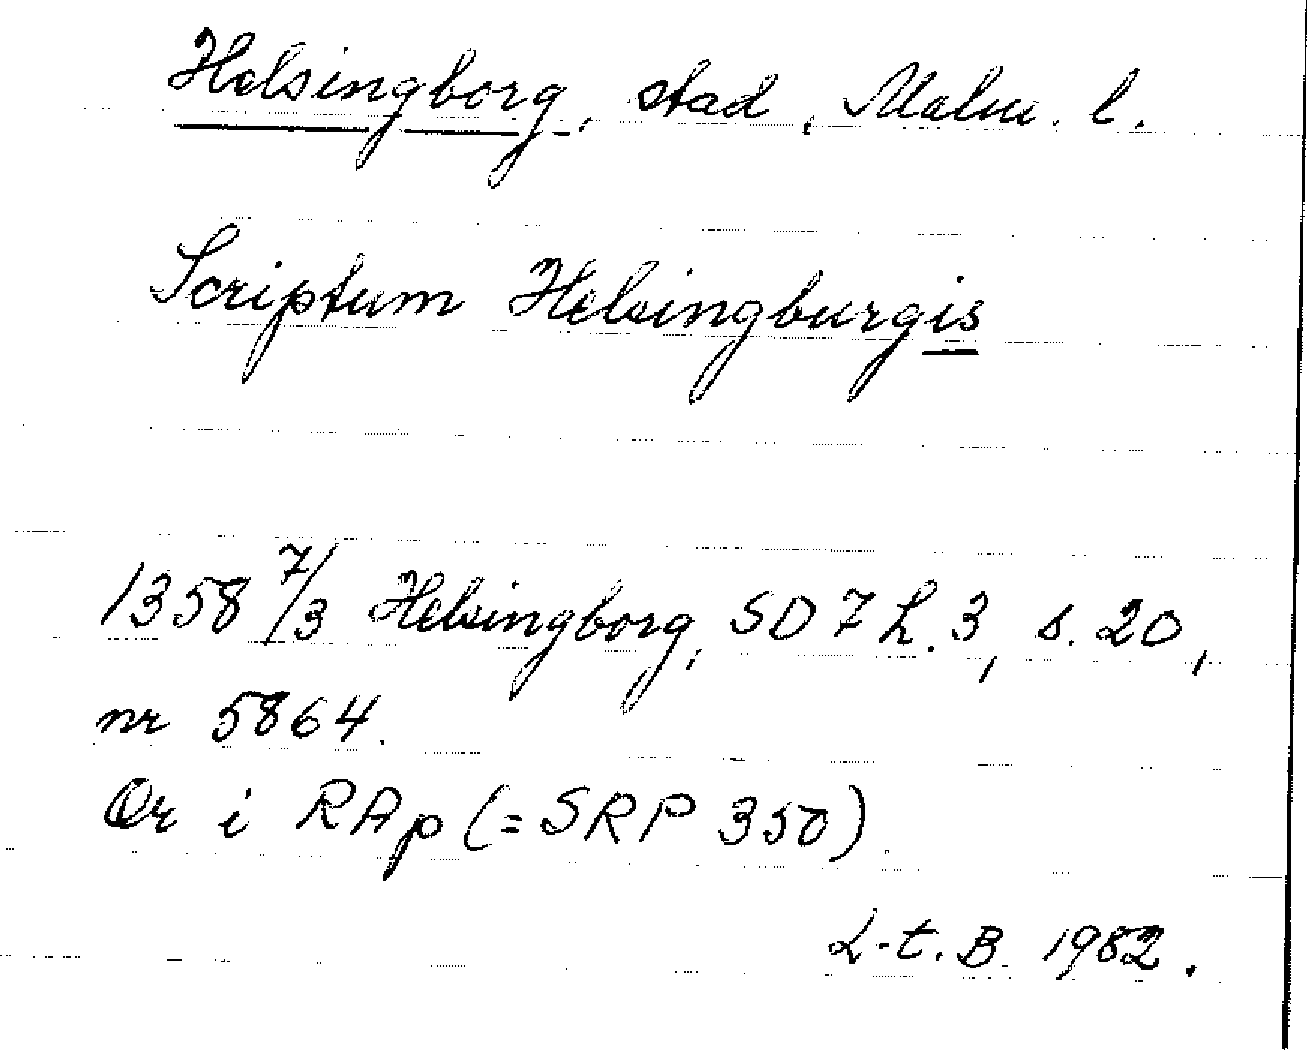 Helsingborg, stad, Malm. l.
Scriptum Helsingburgis
1358 7/3 Helsingborg, SD 7 h. 3, s. 20,
nr 5864.
Or i RAp (= SRP 350).
L-t. B. 1982.